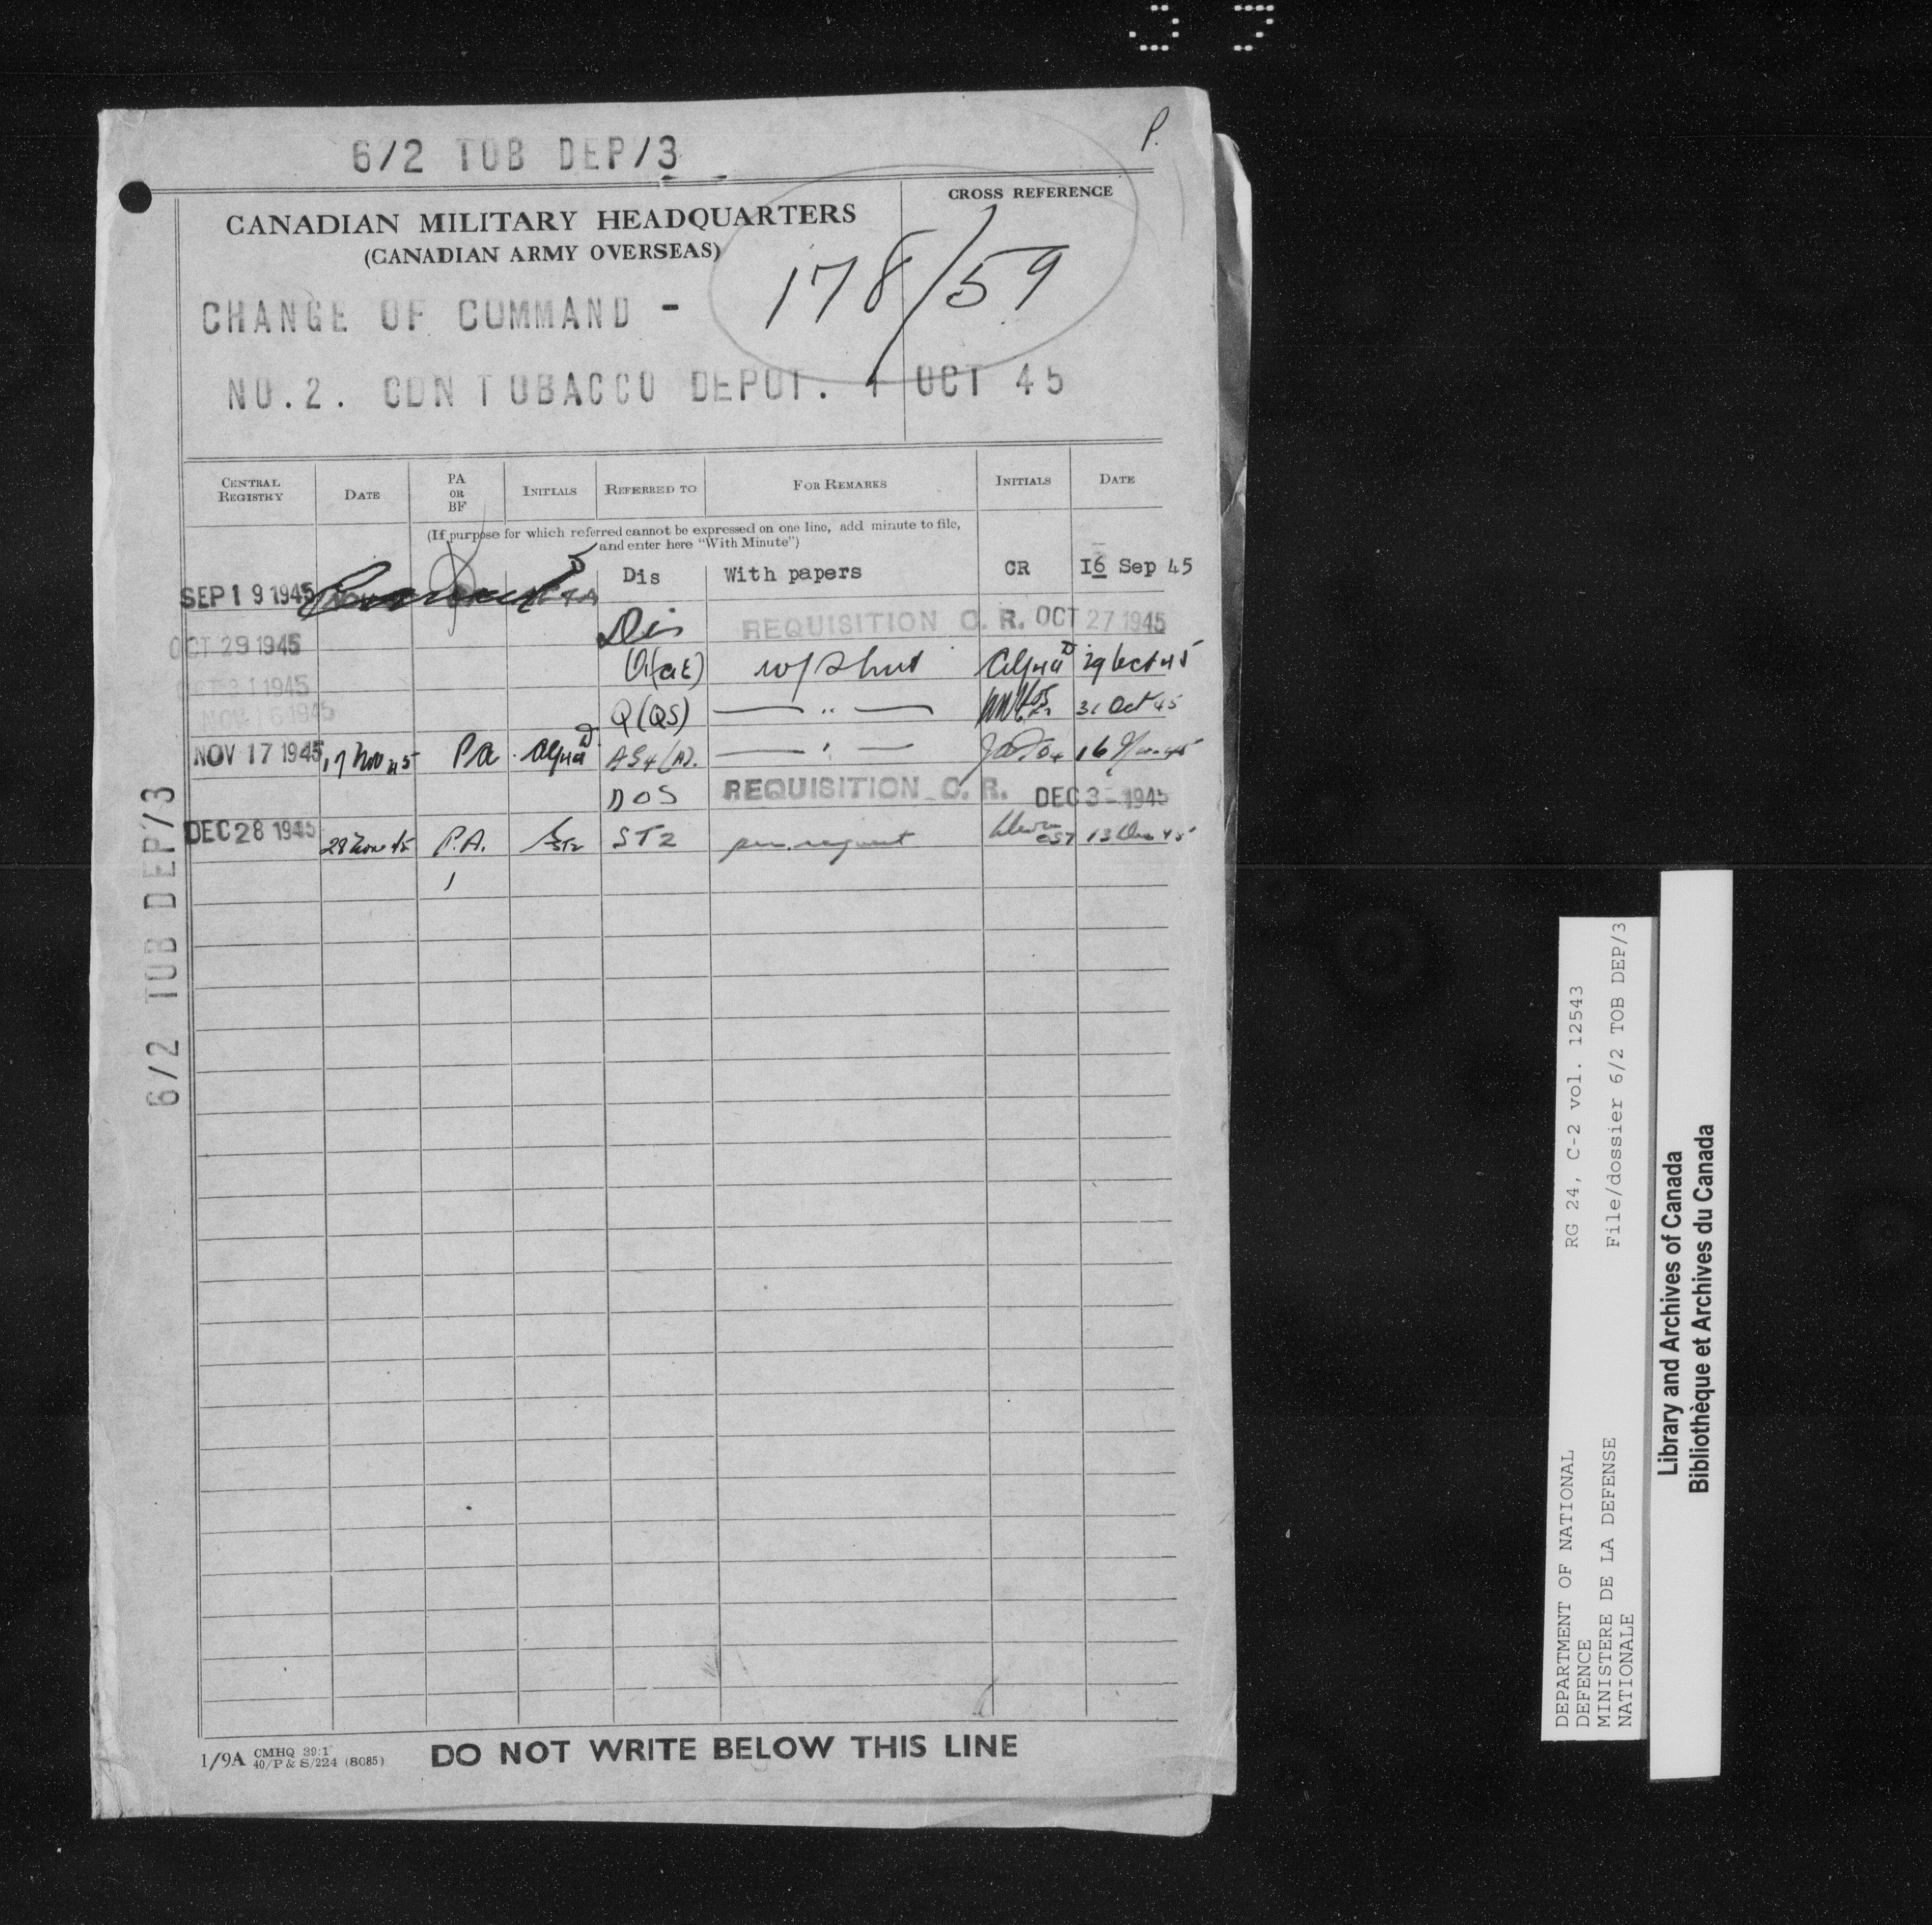 6/2 TOB DEP/3
P.
CANADIAN MILITARY HEADQUARTERS
(CANADIAN ARMY OVERSEAS)
CROSS REFERENCE
178/59
CHANGE OF COMMAND -
NO.2. CDN TOBACCO DEPOT. 1 OCT 45
CENTRAL REGISTRY DATE PA OR BF INITIALS REFERRED TO FOR REMARKS INITIALS DATE
(If purpose for which referred cannot be expressed on one line, add minute to file,
and enter here "With Minute")
SEP 19 1945 Dis With papers CR 16 Sep 45
Dis REQUISITION C. R. OCT 27 1945
OCT 29 1945 29 Oct 45
OCT 31 1945 Q(QS) — " — 31 Oct 45
NOV 16 1945
NOV 17 1945 17 Nov 45 PA AG4(A). — " — 16 Nov 45
DOS REQUISITION C. R. DEC 3 - 1945
DEC 28 1945 P.A. ST2 ST2 per request
6/2 TOB DEP/3
1/9A CMHQ 39:1
40/P & S/224 (8085)
DO NOT WRITE BELOW THIS LINE
DEPARTMENT OF NATIONAL
DEFENCE
MINISTERE DE LA DEFENSE
NATIONALE
RG 24, C-2 vol. 12543
File/dossier 6/2 TOB DEP/3
Library and Archives of Canada
Bibliothèque et Archives du Canada